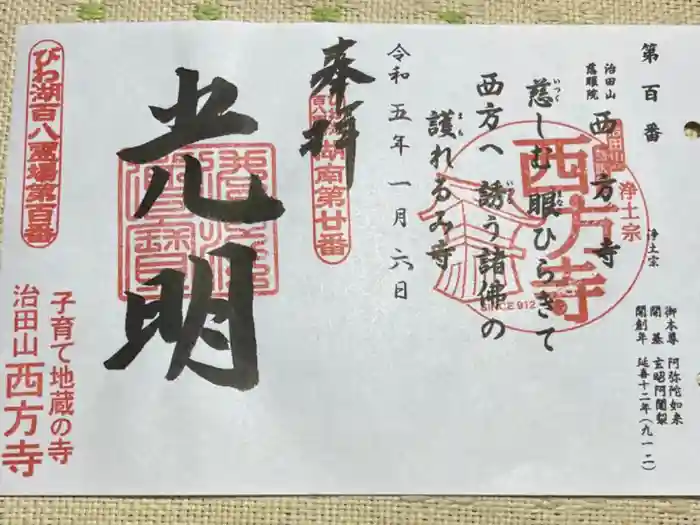 第百番
治田山
落眼院
西方寺
浄土宗
御本尊 阿弥陀如来
開基 玄昭阿闍梨
開創年 延喜十二年(九一二)
慈しむ眼ひらきて
いつく
西方へ誘う諸佛の
護れるみ寺
まも
治田山
西方寺
浄土宗
SINCE 912
令和五年一月六日
奉拝
湖南第廿番
光明
びわ湖百八霊場第百番
子育て地蔵の寺
治田山 西方寺